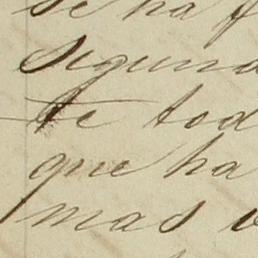 se ha f
segund
te tod
que ha
mas v